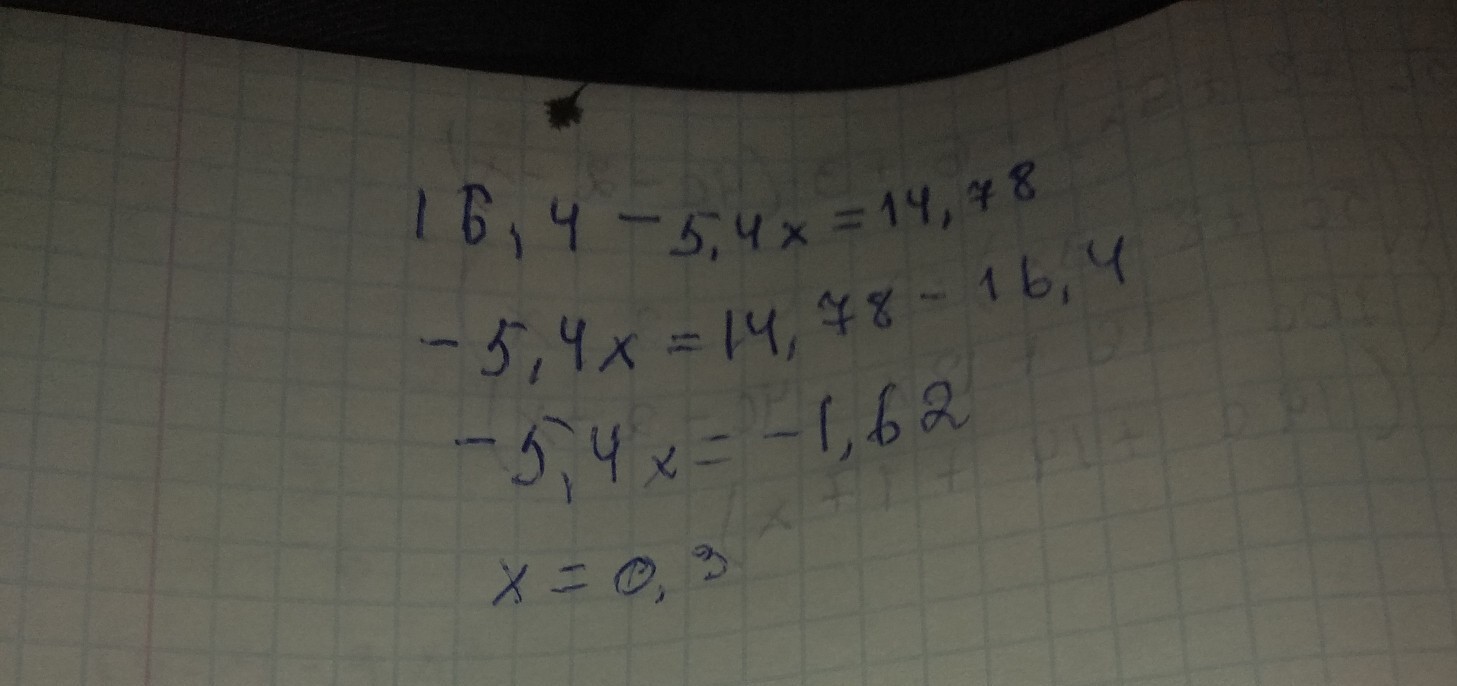 16,4 - 5,4x = 14,78
-5,4x = 14,78 - 16,4
-5,4x = -1,62
x = 0,3